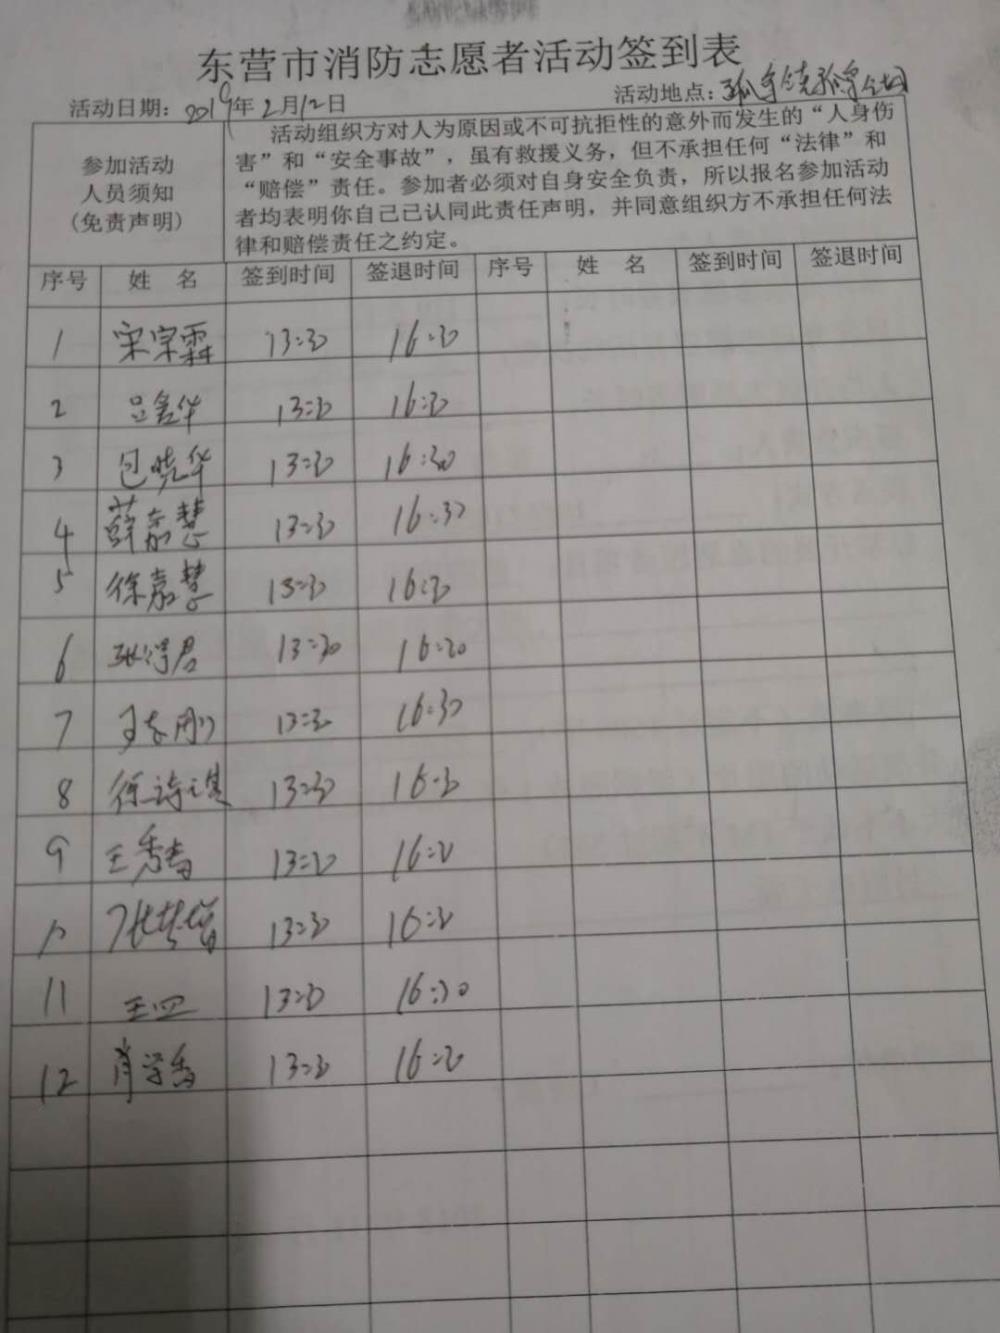 东营市消防志愿者活动签到表
活动日期：2019年2月12日 活动地点：孤岛镇
参加活动
人员须知
(免责声明)
活动组织方对人为原因或不可抗拒性的意外而发生的“人身伤
害”和“安全事故”，虽有救援义务，但不承担任何“法律”和
“赔偿”责任。参加者必须对自身安全负责，所以报名参加活动
者均表明你自己已认同此责任声明，并同意组织方不承担任何法
律和赔偿责任之约定。
序号 姓 名 签到时间 签退时间 序号 姓 名 签到时间 签退时间
1 宋宗霖 13:30 16:30
2 吕金华 13:30 16:30
3 包晓华 13:30 16:30
4 薛嘉慧 13:30 16:30
5 徐嘉慧 13:30 16:30
6 张得君 13:30 16:30
7 王志刚 13:30 16:30
8 徐诗淇 13:30 16:30
9 王秀香 13:30 16:30
10 张梦 13:30 16:30
11 王四 13:30 16:30
12 肖学香 13:30 16:30